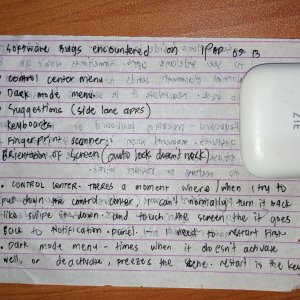 Software Bugs encountered on
• control center menu
• Dark mode menu
• Suggestions (side lane apps)
• Keyboards
• Fingerprint scanner
• Orientation of screen (auto lock doesn't work)
• CONTROL CENTER - theres a moment where/when i try to
put down the control center, can't normally turn it back
like swipe it down and touch the screen the it goes
back to notification panel. need to restart first
• Dark mode menu - times when it doesn't activate
well, or deactivate, freezes the scene. restart is the key
ZTE